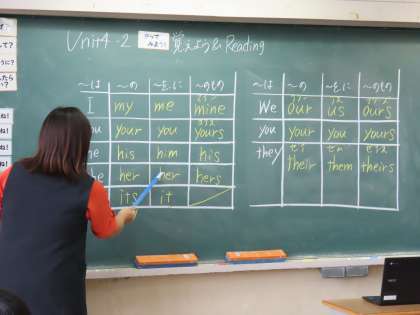 Unit4-2 やってみよう! 覚えよう&Reading
〜は 〜の 〜を,に 〜のもの
I my me mine
you your you yours
he his him his
she her her hers
its it
〜は 〜の 〜を,に 〜のもの
We our us ours
you your you yours
they their them theirs